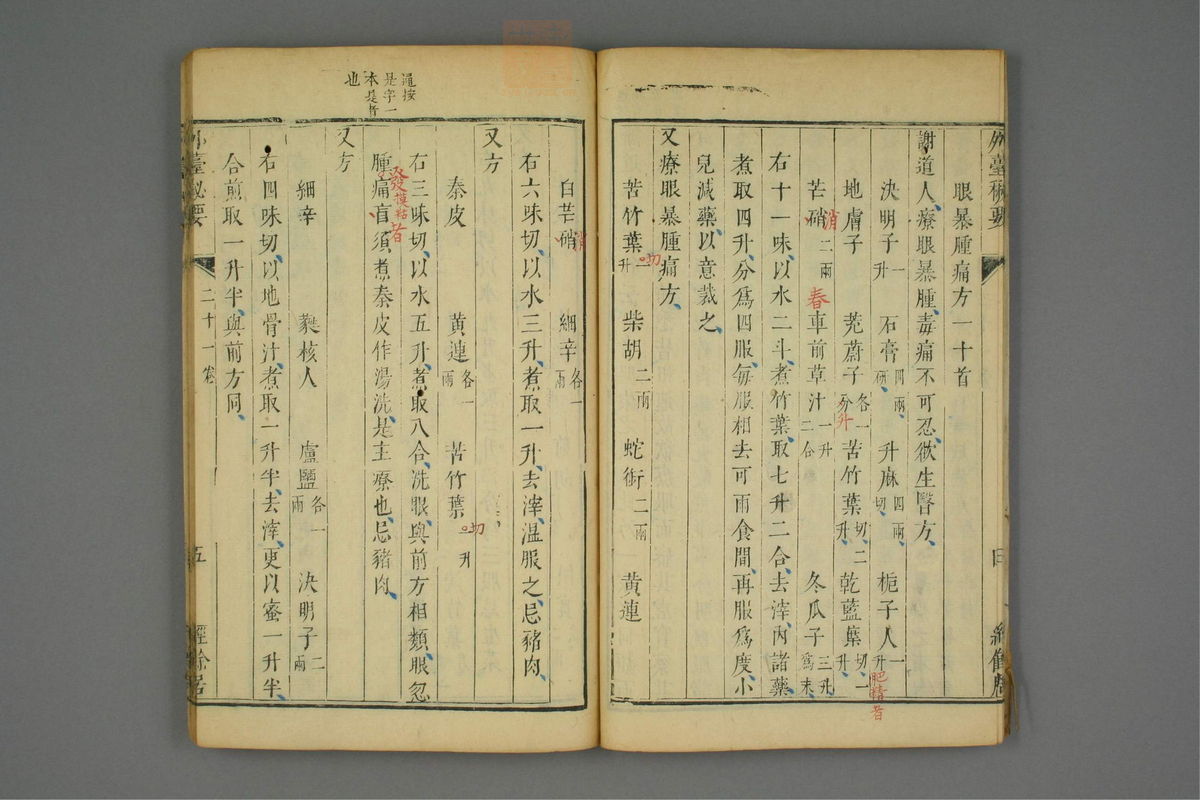 外臺秘要
眼暴腫痛方一十首
謝道人療眼暴腫毒痛不可忍欲生瞖方
決明子一升 石膏四兩研 升麻四兩切 梔子人一升 肥者
地膚子 茺蔚子各一分 升 苦竹葉切二升 乾藍葉切一升
芒硝二兩 消 車前草汁一升二合 春 冬瓜子三升為末
右十一味以水二斗煮竹葉取七升二合去滓內諸藥
煮取四升分為四服每服相去可兩食間再服為度小
兒減藥以意裁之
又療眼暴腫痛方
苦竹葉一升 切 柴胡二兩 蛇銜二兩 黃連
白芒硝 消 細辛各一兩
右六味切以水三升煮取一升去滓溫服之忌豬肉
又方
秦皮 黃連各一兩 苦竹葉一升 切
右三味切以水五升煮取八合洗眼與前方相類眼忽
腫痛盲須煮秦皮作湯洗是主療也忌豬肉
發 者
又方
細辛 蕤核人 盧鹽各一兩 決明子二兩
右四味切以地骨汁煮取一升半去滓更以蜜一升半
合煎取一升半與前方同
按
是字一
本是者
也
外臺秘要 二十一卷 五 經餘居